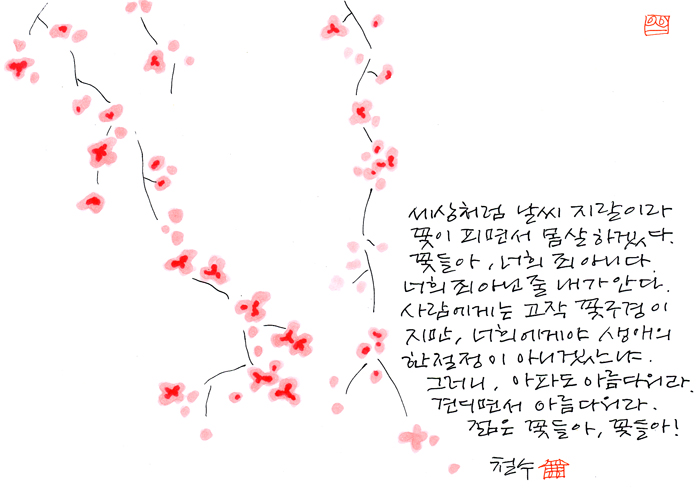 세상처럼 날씨 지랄이라
꽃이 피면서 몸살 하겠다.
꽃들아, 너희 죄 아니다.
너희 죄 아닌 줄 내가 안다.
사람에게는 고작 꽃구경이
지만, 너희에게야 생애의
한 절정이 아니겠느냐.
그러니, 아파도 아름다워라.
견디면서 아름다워라.
짧은 꽃들아, 꽃들아!
철수